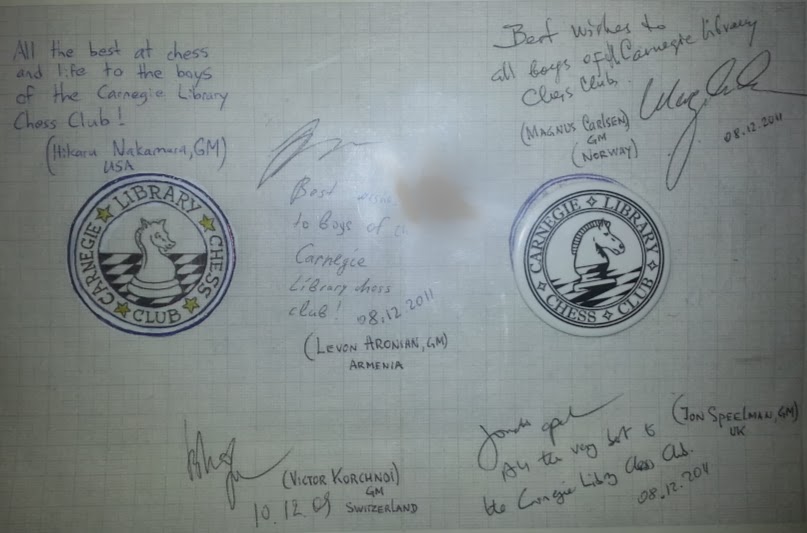 All the best at chess
and life to the boys
of the Carnegie Library
Chess Club!
(Hikaru Nakamura, GM)
USA
CARNEGIE LIBRARY CHESS CLUB
Best
to boys of
Carnegie
Library chess
club! 08.12 2011
(LEVON ARONIAN, GM)
ARMENIA
Best wishes to
all boys of Carnegie Library
Chess Club.
(MAGNUS CARLSEN)
GM
(NORWAY)
08.12.2011
CARNEGIE LIBRARY
CHESS CLUB
(VICTOR KORCHNOI)
GM
10.12.09 SWITZERLAND
(JON SPEELMAN, GM)
UK
All the very best to
the Carnegie Library Chess Club.
08.12.2011